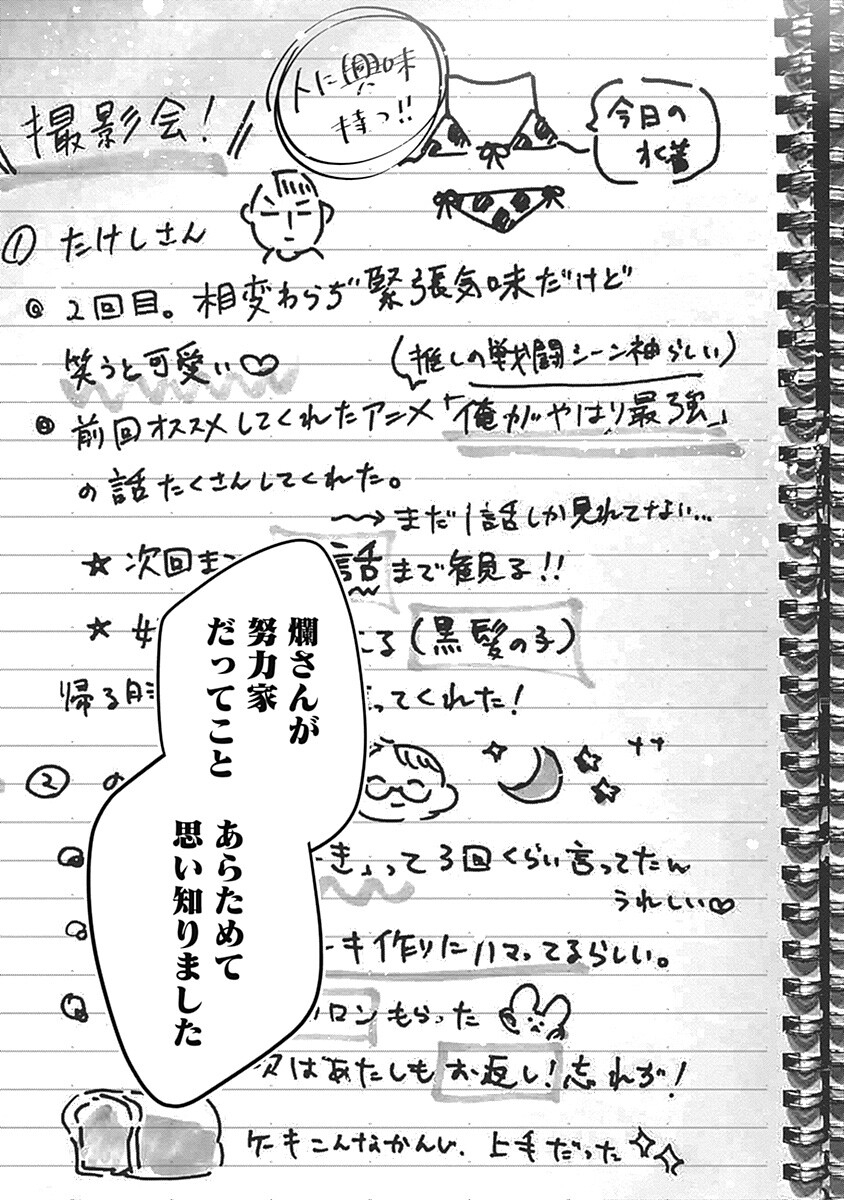 撮影会！
人に興味
持つ!!
今日の
水着
① たけしさん
2回目。相変わらず緊張気味だけど
笑うと可愛い♡
（推しの戦闘シーン神らしい）
前回オススメしてくれたアニメ「俺がやはり最強」
の話たくさんしてくれた。
→まだ1話しか見れてない…
★次回ま
話まで観る!!
★
る（黒髪の子）
帰る時
ってくれた！
②
き」って3回くらい言ってたん
うれしい♡
ーキ作りにハマってるらしい。
ロンもらった
次はあたしもお返し！忘れず！
ケーキこんなかんじ、上手だった
爛さんが
努力家
だってこと
あらためて
思い知りました